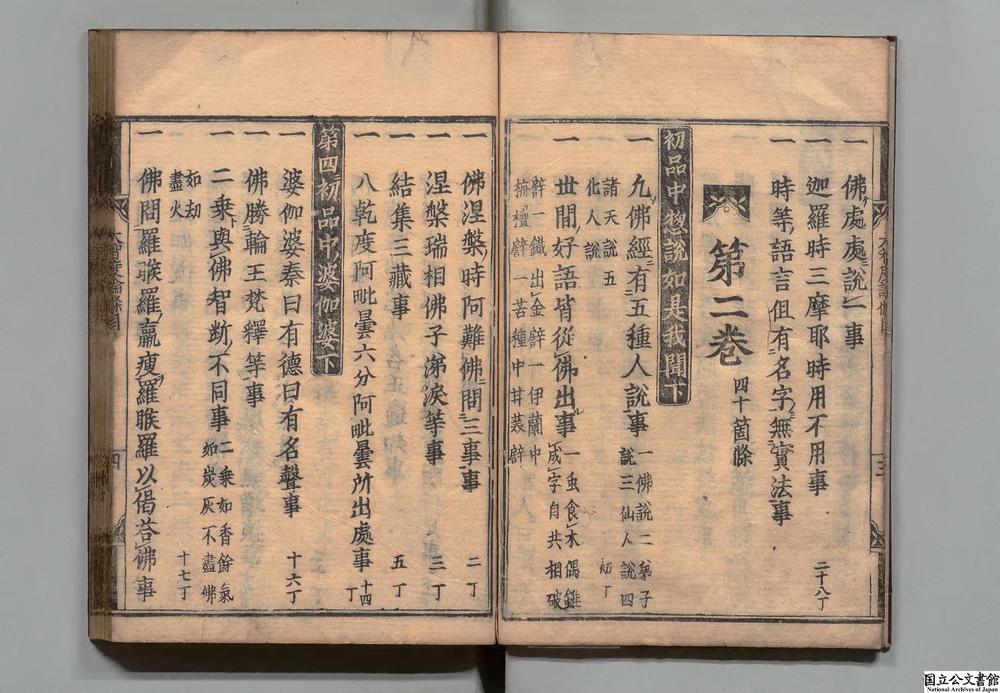 一 佛處處說一事
一 迦羅時三摩耶時用不用事
一 時等語言但有名字無實法事 二十八丁
第二卷 四十箇條
初品中惣說如是我聞下
一 九佛經有五種人說事 一佛說二弟子
說三仙人說四
諸天說五
化人說 初丁
一 世間好語皆從佛出事 一虫食木偶
成字自共相破
譬一鐵出金譬一伊蘭中
栴檀譬一苦種中甘菓譬
一 佛涅槃時阿難佛問三事事 二丁
一 涅槃瑞相佛子涕淚等事 三丁
一 結集三藏事 五丁
一 八乾度阿毗曇六分阿毗曇所出處事 十四丁
第四初品中婆伽婆下
一 婆伽婆秦曰有德曰有名聲事 十六丁
一 佛勝輪王梵釋等事
一 二乘與佛智斷不同事 二乘如香餘氣
如炭灰不盡佛
如劫
盡火 十七丁
一 佛問羅睺羅羸瘦羅睺羅以偈荅佛事
四
三
国立公文書館
National Archives of Japan